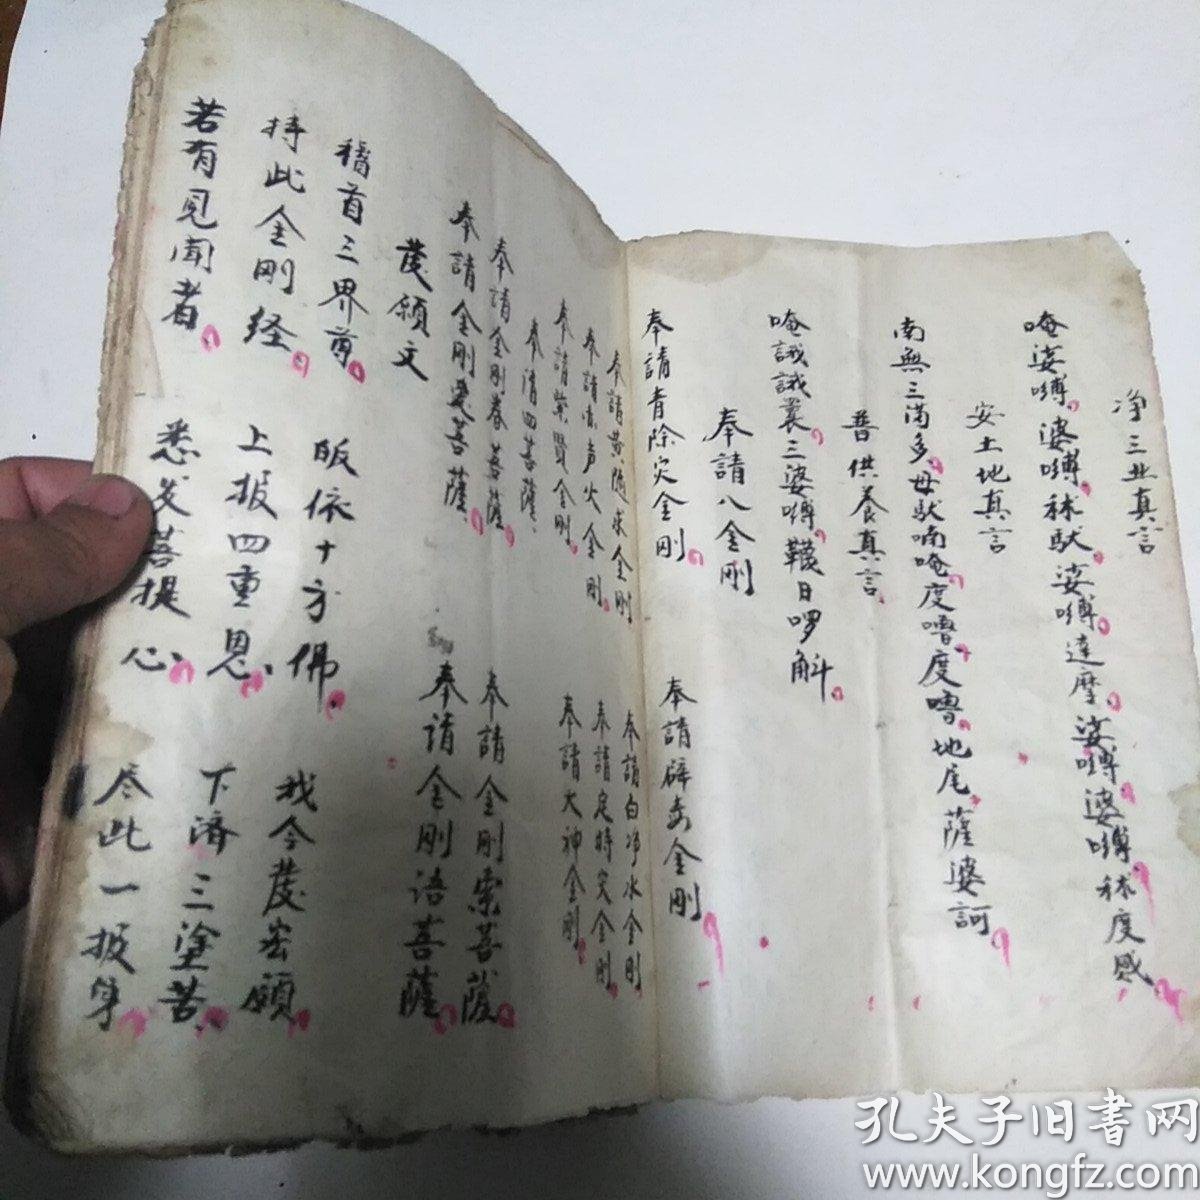 净三业真言
唵娑嚩婆嚩秫馱娑嚩達摩娑嚩婆嚩秫度憾
安土地真言
南無三滿多母馱喃唵度嚕度嚕地尾薩婆訶
普供养真言
唵誐誐曩三婆嚩韈日啰斛
奉請八金剛
奉請青除灾金刚 奉請辟毒金剛
奉請黄随求金刚 奉請白净水金刚
奉請赤声火金刚 奉請定持灾金刚
奉請紫賢金刚 奉請大神金刚
奉請四菩薩
奉請金刚眷菩薩 奉請金刚索菩薩
奉請金刚爱菩薩 奉請金刚语菩薩
发願文
稽首三界尊 皈依十方佛 我今发宏願
持此金刚经 上报四重恩 下濟三塗苦
若有見聞者 悉发菩提心 尽此一报身
孔夫子旧书网
www.kongfz.com